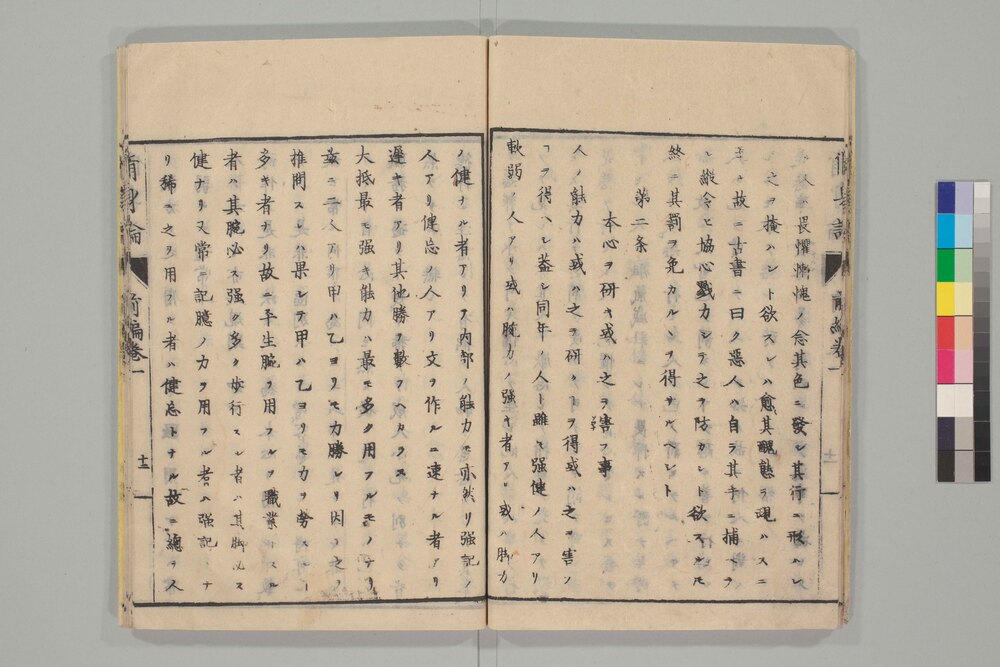 畏懼慚愧ノ念其色ニ發シ其行ニ形ハレ
之ヲ掩ハント欲スレハ愈其醜態ヲ現ハスニ
故ニ古書ニ曰ク惡人ハ自ラ其手ニ捕ヘラ
レ縱令ヒ協心戮力シテ之ヲ防カント欲スルモ
終ニ其罰ヲ免カルヽヲ得サルヘシト
第二条
本心ヲ研キ或ハ之ヲ害フ事
人ノ能力ハ或ハ之ヲ研クコトヲ得或ハ之ヲ害ノ
フヲ得ヘシ蓋シ同年ノ人ト雖モ强健ノ人アリ
軟弱ノ人アリ或ハ腕力ノ强キ者アリ或ハ脚力
ノ健ナル者アリ又内部ノ能力モ亦然リ强記ノ
人アリ健忘ノ人アリ文ヲ作ルニ速ナル者アリ
遲キ者アリ其他勝テ數フヘカラス
大抵最モ强キ能力ハ最モ多ク用フルモノナリ
茲ニ二人アリ甲ハ乙ヨリモ力勝レリ因テ之ヲ
推問スレハ果シテ甲ハ乙ヨリモ力ヲ勞スルコト
多キ者ナリ故ニ平生腕ヲ用フルヲ職業トスル
者ハ其腕必ス强ク多ク歩行スル者ハ其脚必ス
健ナリ又常ニ記臆ノ力ヲ用フル者ハ强記トナ
リ稀ニ之ヲ用フル者ハ健忘トナル故ニ總テ人
脩身論
前編卷一
十二